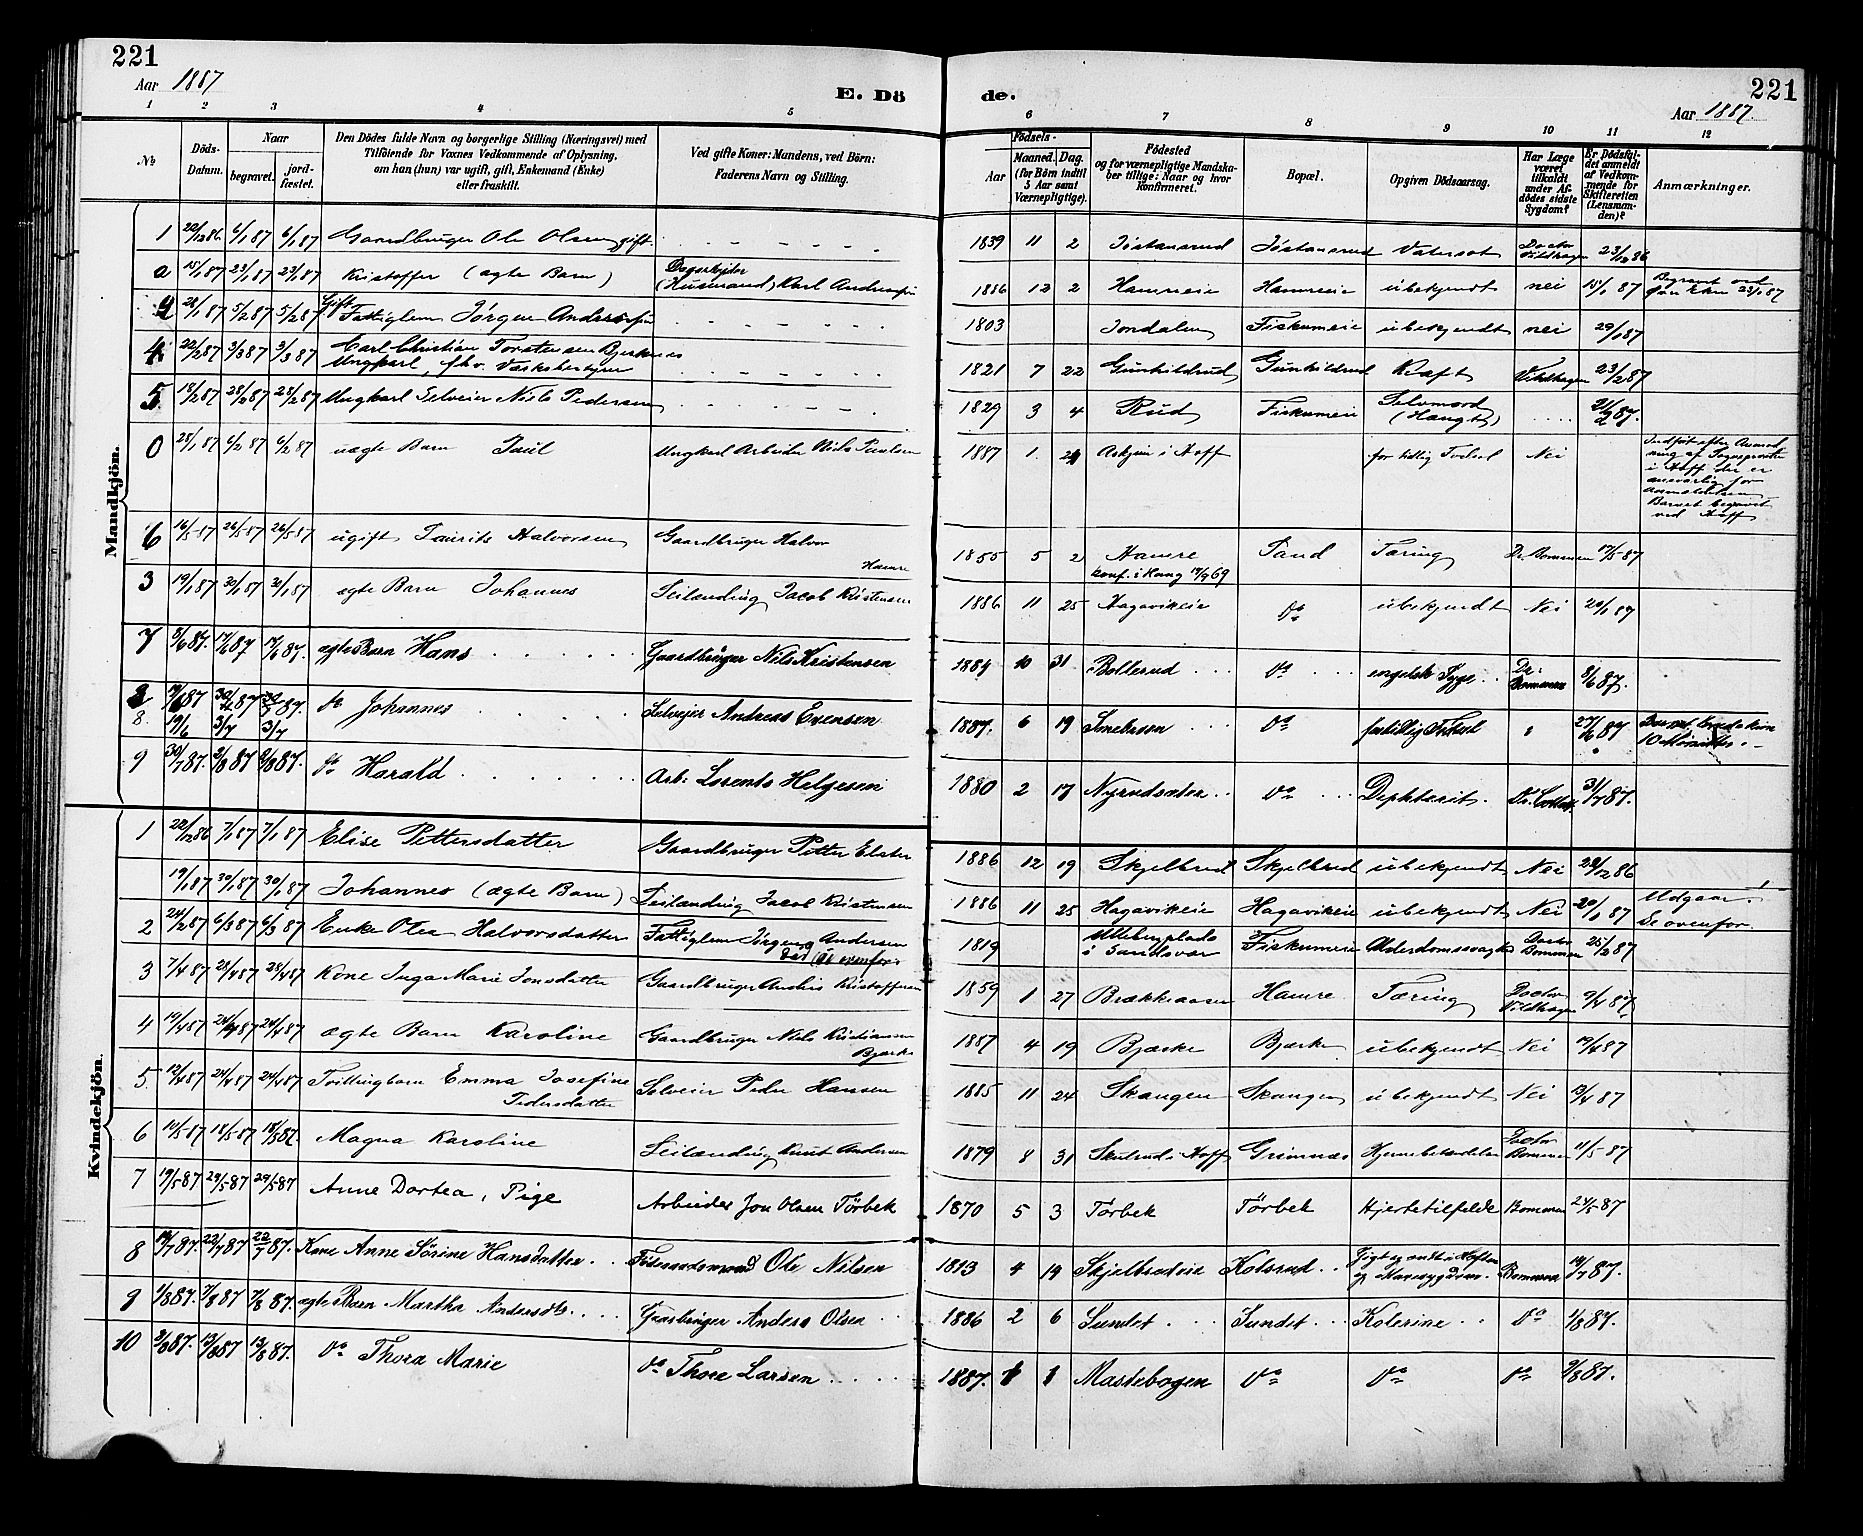 221
Aar 1887
E. Dö
de.
221
Aar 1887.
1 2 3 4 5
6 7 8 9 10 11 12
№
Döds-Datum.
Naar
begravet. jord-fæstet.
Den Dödes fulde Navn og borgerlige Stilling (Næringsvei) med
Tilföiende for Voxnes Vedkommende af Oplysning,
om han (hun) var ugift, gift, Enkemand (Enke)
eller fraskilt.
Ved gifte Koner: Mandens, ved Börn:
Faderens Navn og Stilling.
Födsels-
Aar Maaned. Dag.
(for Börn indtil
5 Aar samt
Værnepligtige).
Födested
og for værnepligtige Mandska-
ber tillige: Naar og hvor
Konfirmeret.
Bopæl.
Opgiven Dödsaarsag.
Har Læge
været
tilkaldt
under Af-
dödes sidste
Sygdom?
Er Dödsfal-
det anmeldt
af Vedkom-
mende for
Skifteretten
(Lensman-
den)?
Anmærkninger.
Mandkjön.
1 22/12 86 6/1 87 6/1 87 Gaardbruger Ole Olsen gift 1839 11 2 Jöstansrud Jöstansrud Vatersot Doctor Vildhagen 23/12 86
a 15/1 87 23/1 87 23/1 87 Kristoffer (ægte Barn) Dagarbejder (Husmand) Karl Andersen 1886 12 2 Hamreie Hamreie ubekjendt nei 15/1 87 Begravet ved 23/1 87
28/1 87 5/2 87 5/2 87 Gift Fattiglem Jörgen Andersen 1803 Jondalen Fiskumeie ubekjendt nei 29/1 87
4 22/2 87 3/3 87 3/3 87 Carl Christian Torstensen Bjerknes
Ungkarl, fhv. Værksbestyrer 1821 7 22 Gunhildrud Gunhildrud Kræft Vildhagen 23/2 87
5 18/2 87 28/2 87 28/2 87 Ungkarl Selveier Nils Pedersen 1829 3 4 Rud Fiskumeie Selvmord (Hængt) 21/2 87.
0 28/1 87 6/2 87 6/2 87 uægte Barn Paul Ungkarl Arbeider Nils Paulsen 1887 1. 24 Askjum i Hoff for tidlig Födsel Nei
Indfört efter Anmod
ning af Sognepresten
i Hoff der er
ansvarlig for
Anmeldelsen
Barnet begravet
ved Hoff
6 16/5 87 26/5 87 26/5 87 ugift Laurits Halvorsen Gaardbruger Halvor Hamre 1855 5 2 Hamre konf. i Haug 17/9 69 Sand Tæring Dr. Bommen 17/5 87
3 19/1 87 30/1 87 30/1 87 ægte Barn Johannes Leilænding Jacob Kristensen 1886 11 25 Hagavikeie Do ubekjendt Nei 20/1 87
7 8/6 87. 17/6 87 17/6 87. ægte Barn Hans Gaardbruger Nils Kristensen 1884 10 31. Bollerud Do engelsk Syge Dr. Bommen 8/6 87.
8. 19/6 3/7 3/7 do Johannes Selvejer Andreas Evensen 1887. 6 19 Smebrson Do fortidlig Födsel 27/6 87 10 Minutter.
9 30/7 87. 2/8 87 2/8 87. do Harald Arb. Lorents Helgesen 1880 2 17 Nyrudsæter Do Diphterit. 31/7 87.
Kvindekjön.
1 22/12 86 7/1 87 7/1 87 Elise Pettersdatter Gaardbruger Petter Elster 1886 12 19 Skjelbred Skjelbred ubekjendt Nei 22/12 86
19/1 87 30/1 87 30/1 87 Johannes (ægte Barn) Leilænding Jacob Kristensen 1886 11 25 Hagavikeie Hagavikeie ubekjendt Nei 20/1 87 Udgaar. Se ovenfor.
2 24/2 87 6/3 87 6/3 87 Enke Olea Halvorsdatter Fattiglem Jörgen Andersen död (se ovenfor) 1819 Ulleberplads i Sandsvær Fiskumeie Alderdomssvaghed Doctor Bommen 25/2 87
3 7/4 87 28/4 87 28/4 87 Kone Inga Marie Jonsdatter Gaardbruger Anders Kristoffersen 1859 1 27 Brækkaasen Hamre Tæring Doctor Vildhagen 9/4 87.
4 19/4 87 24/4 87 24/4 87 ægte Barn Karoline Gaardbruger Niels Kristiansen Bjerke 1887 4 19 Bjerke Bjerke ubekjendt Nei 19/4 87
5. 12/4 87 24/4 87 24/4 87 Tvillingbarn Emma Josefine Pedersdatter Selveier Peder Hansen 1885 11 24 Skangen Skangen ubekjendt Nei 13/4 87
6 10/5 87 18/5 87 18/5 87. Magna Karoline Leilænding Knut Andersen 1879 8 31 Skulrud i Hoff Grimnæs Hjernebetændelse Doctor Bommen 11/5 87
7 19/5 87 29/5 87 29/5 87 Anne Dortea, Pige Arbeider Jon Olsen Törbek 1870 5 3 Törbek Törbek Hjertetilfælde Bommen 24/5 87
8 14/7 87. 22/7 87 22/7 87. Kone Anne Sörine Hansdatter Föderaadsmand Ole Nilsen 1813 4 19 Skjelbredeie Kolsrud Gigt og ondt i Hoften og Mavesygdom. Bommen 14/7 87.
9 1/8 87. 7/8 87 7/8 87. ægte Barn Martha Andersdtr. Gaardbruger Anders Olsen 1886 2 6 Sundet Sundet Kolerine Do 1/8 87.
10 2/8 87. 13/8 87 13/8 87. Do Thora Marie Do Thore Larsen 1887. 1 1 Mastebogen Do Do Do 9/8 87.